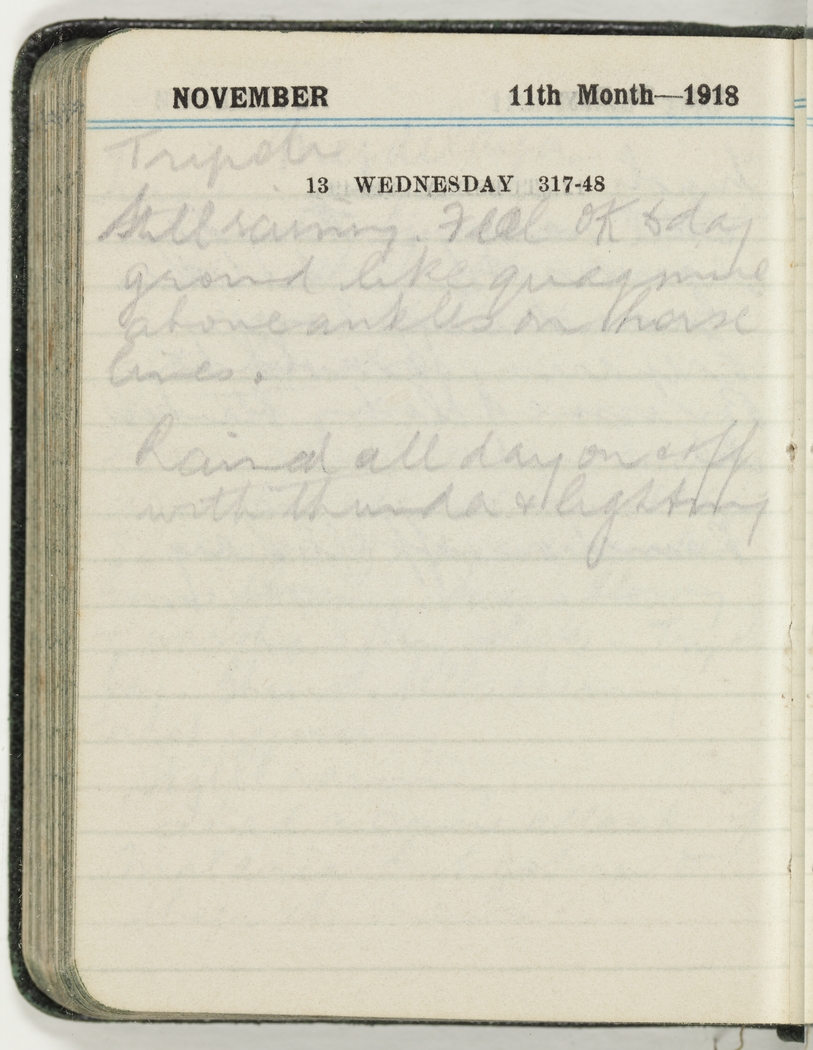 NOVEMBER 11th Month—1918
Tripoli
13 WEDNESDAY 317-48
Still raining. Feel OK today
ground like quagmire
above ankles on horse
lines.
Raind all day on & off
with thunda & lightning